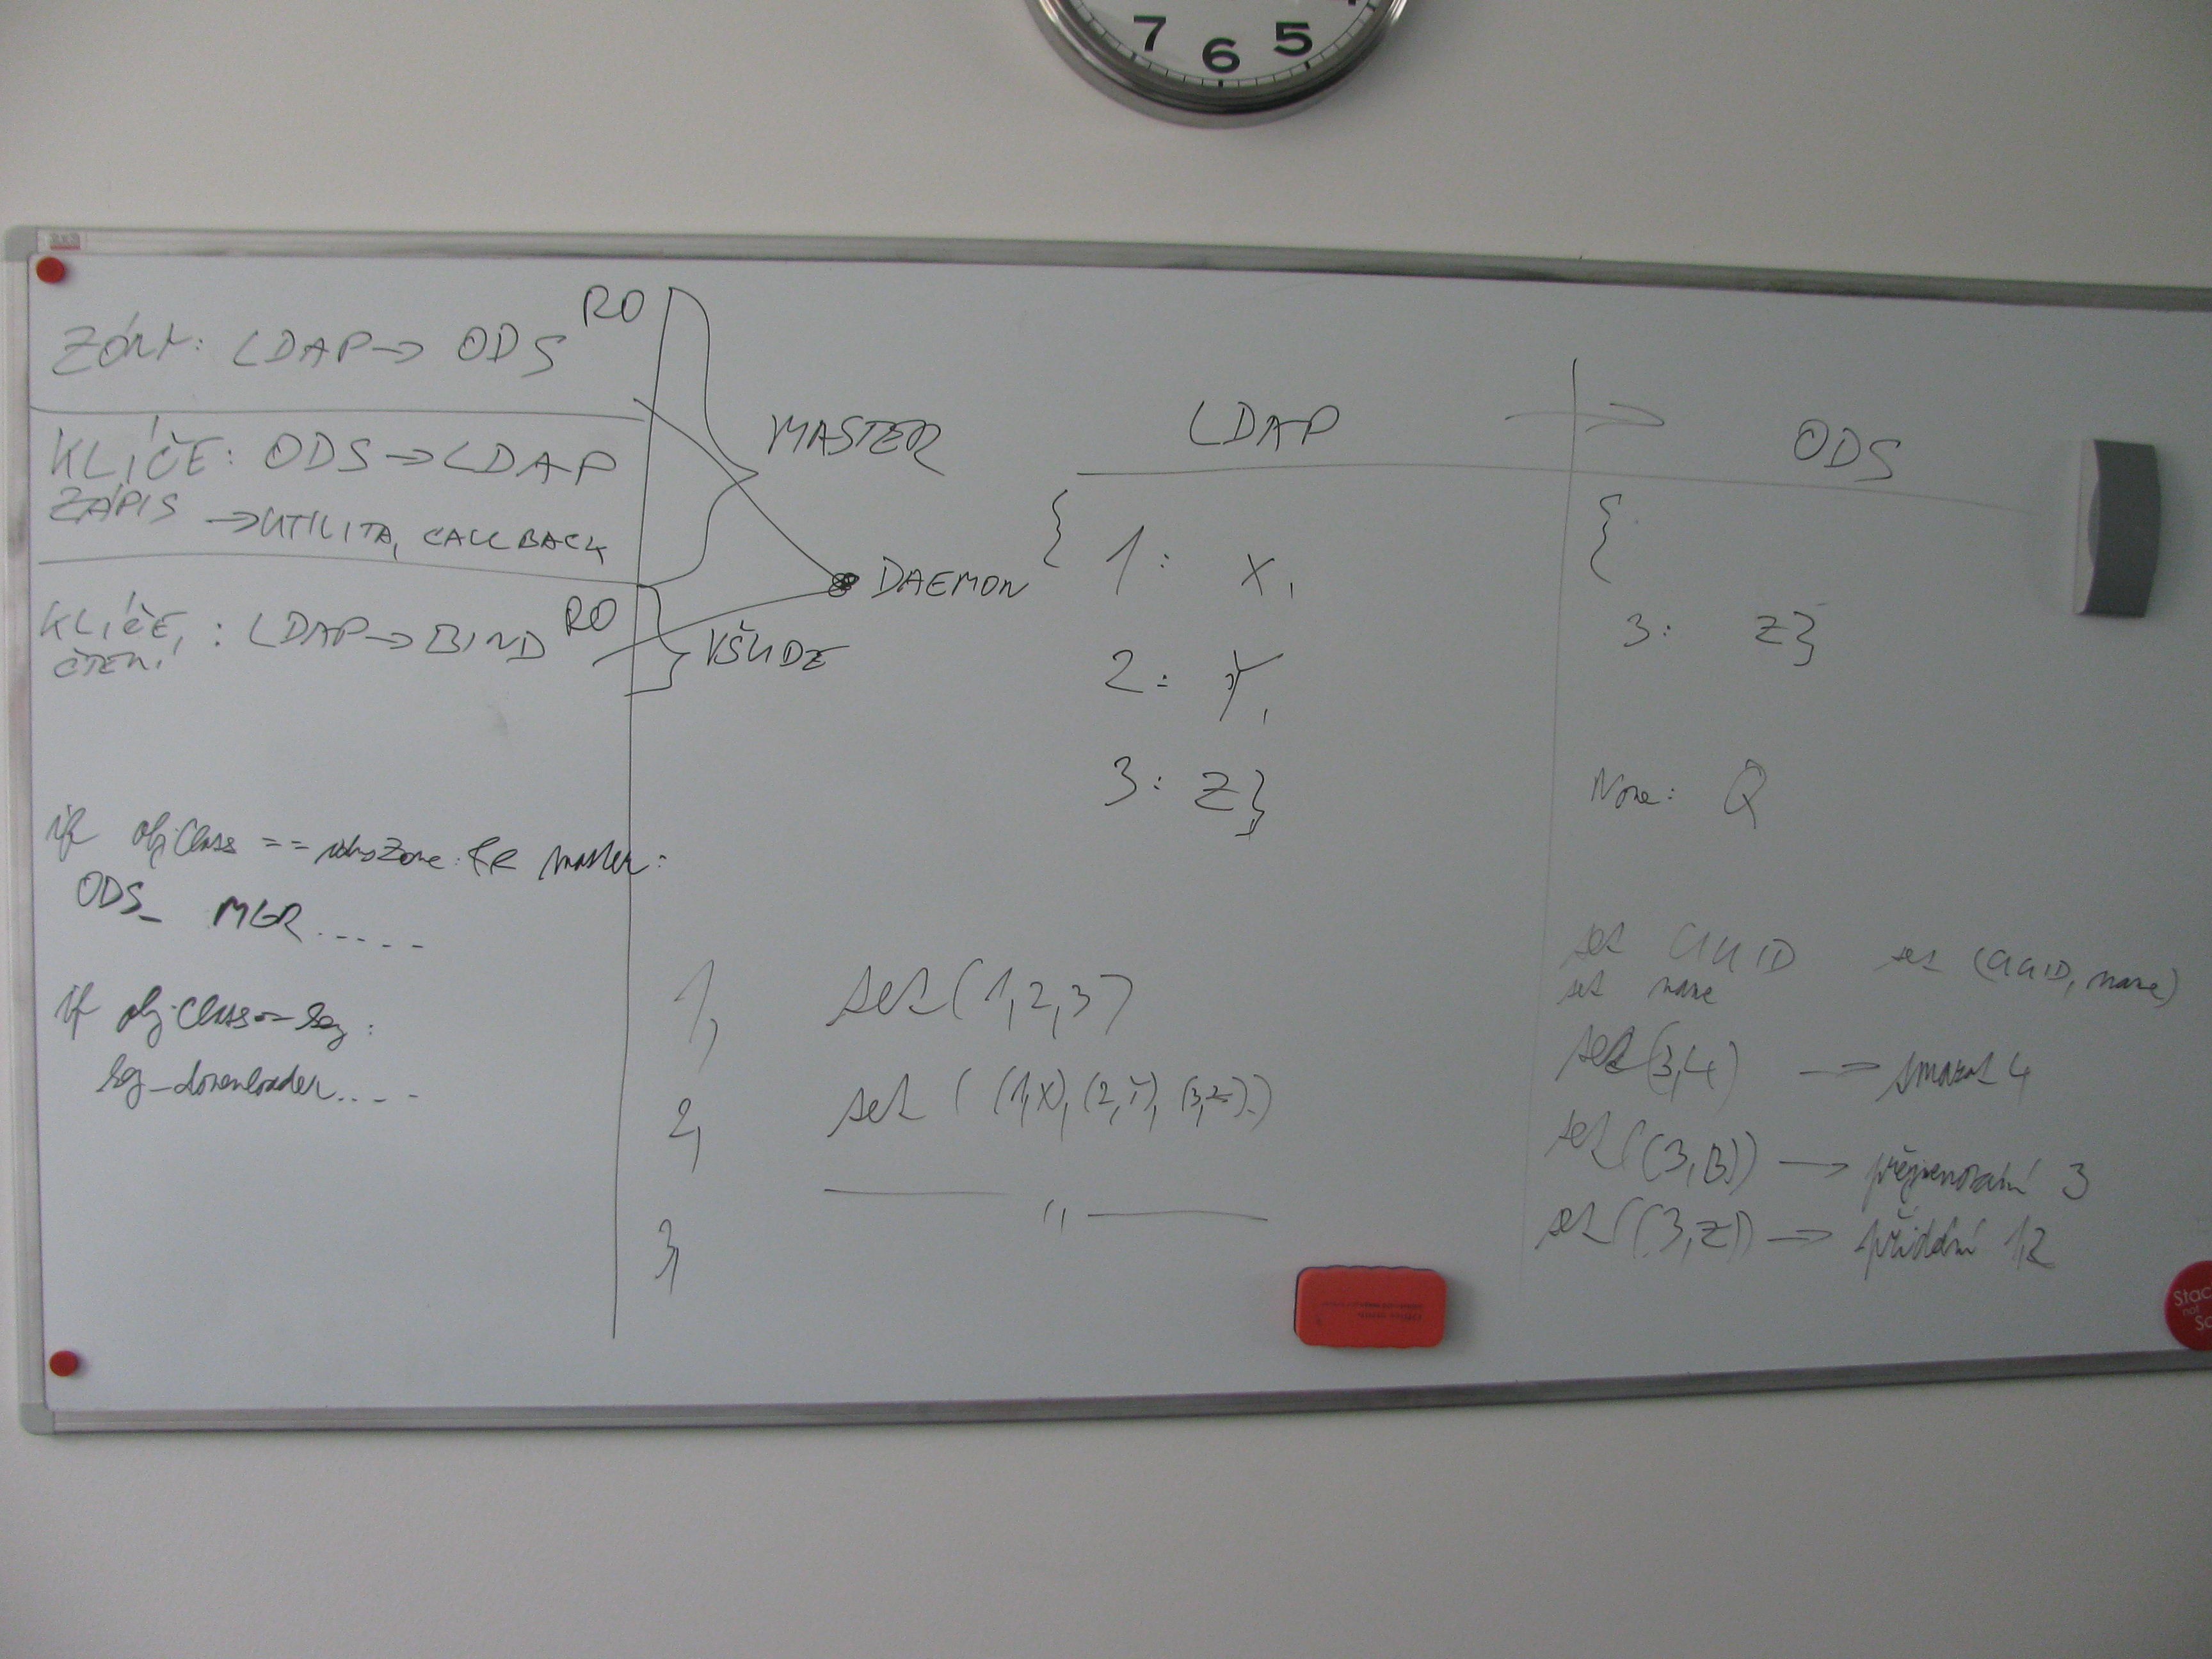 7 6 5
ZÓNY: LDAP → ODS RO
KLÍČE: ODS → LDAP
ZÁPIS → UTILITA, CALLBACK
KLÍČE, : LDAP → BIND RO
ČTENÍ
MASTER
DAEMON
VŠUDE
if objClass == idnsZone && master:
ODS_ MGR .....
if objClass == key:
key_downloader....
LDAP → ODS
{ 1: X,
2: Y,
3: Z}
{
3: Z}
None: Q
1, set(1,2,3)
2, set ((1,X), (2,Y), (3,Z))
3, —— " ——
set UUID set (UUID, name)
set name
set(3,4) → smazat 4
set((3,B)) → přejmenování 3
set((3,Z)) → přidání 1,2
Stac
not